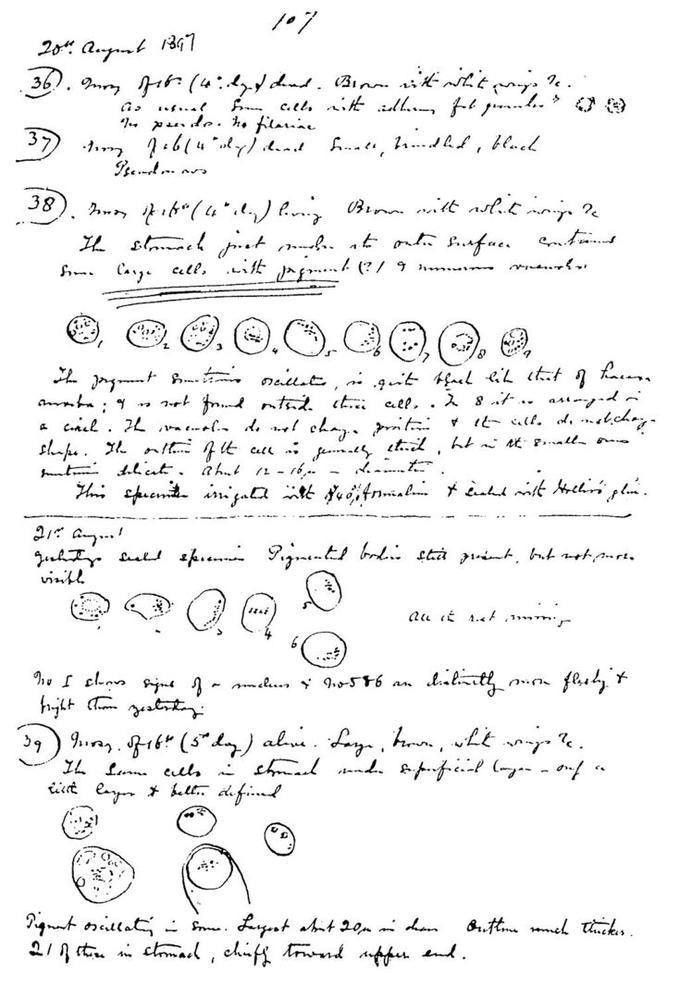 107
20th August 1897
36. Mosq of 16th (4th day) dead. Brown with white wings &c.
As usual some cells with adherent fat granules
No pseudos. No filariae
37 Mosq of 16 (4th day) dead Small, brindled, black
38. Mosq of 16th (4th day) living Brown with white wings &c
The stomach just under its outer surface contained
some large cells with pigment (?) & numerous vacuoles
1 2 3 4 5 6 7 8 9
The pigment sometimes oscillates, is quite black like that of haem
amoeba; & is not found outside these cells. In 8 it is arranged in
a circle. The vacuoles do not change position & the cells do not change
shape. The outline of the cell is generally thick, but in the smaller ones
sometimes delicate. About 12-16µ diameter.
This specimen irrigated with 40% formalin & sealed with Hollis's glue.
21st August
Yesterdays sealed specimen Pigmented bodies still present, but not more
visible
3 4 5
6
All the rest missing
No 1 shows signs of a nucleus & No 5 & 6 are distinctly more fleshy &
bright than yesterday.
39 Mosq. of 16th (5th day) alive. Large, brown, white wings &c.
The same cells in stomach under superficial layer - only a
little larger & better defined
Pigment oscillating in some. Largest about 20µ in diam Outline much thicker.
21 of these in stomach, chiefly toward upper end.